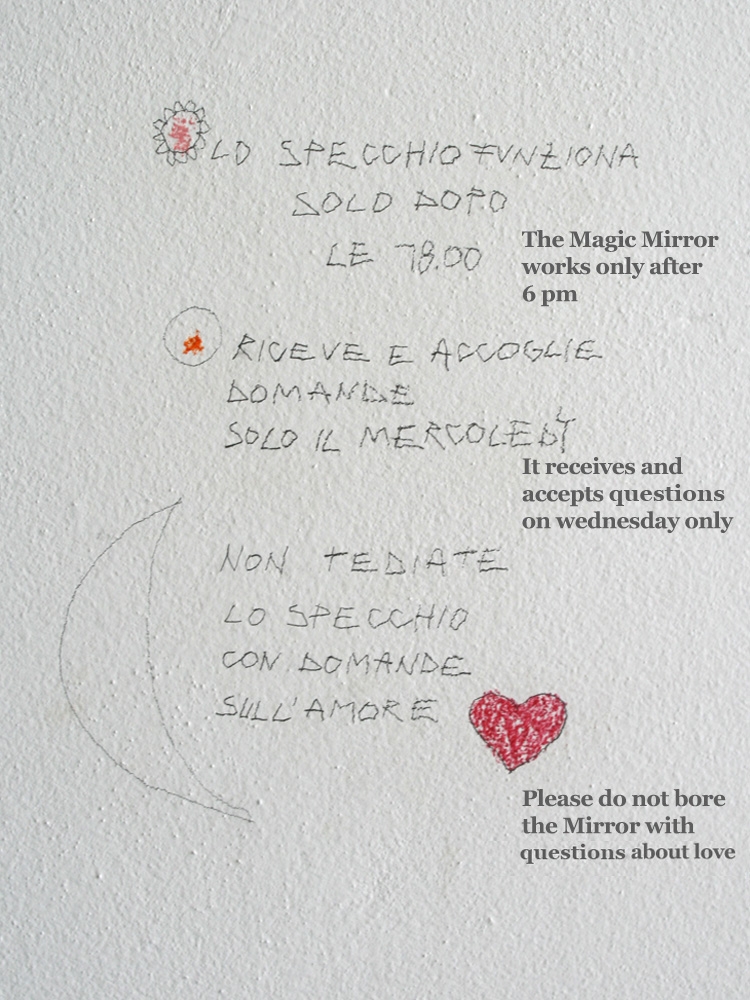 LO SPECCHIO FUNZIONA
SOLO DOPO
LE 18.00
The Magic Mirror
works only after
6 pm
RICEVE E ACCOGLIE
DOMANDE
SOLO IL MERCOLEDÌ
It receives and
accepts questions
on wednesday only
NON TEDIATE
LO SPECCHIO
CON DOMANDE
SULL'AMORE
Please do not bore
the Mirror with
questions about love